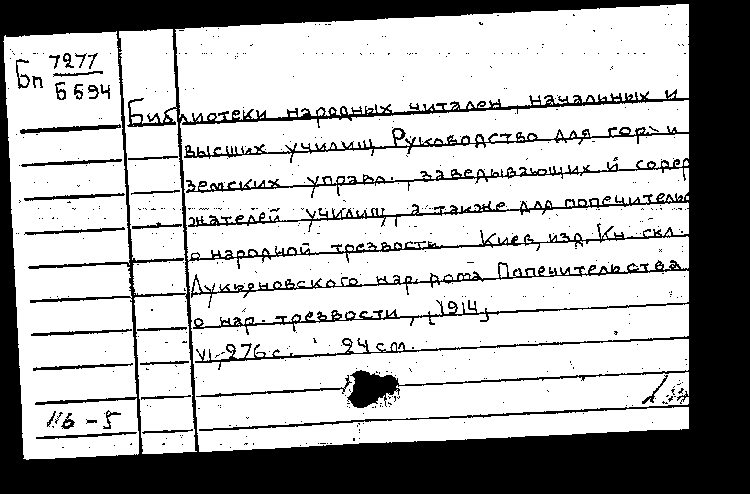 Бп 7277
Б 594
Библиотеки народных читален, начальных и
высших училищ. Руководство для гор. и
земских управл., заведывающих и содер
жателей училищ, а также для попечительс
о народной трезвости Киев, изд. Кн. скл.
Лукьяновского нар. дома Попечительства
о нар. трезвости, [1914]
VI, 276 с. 24 см.
116 - 5